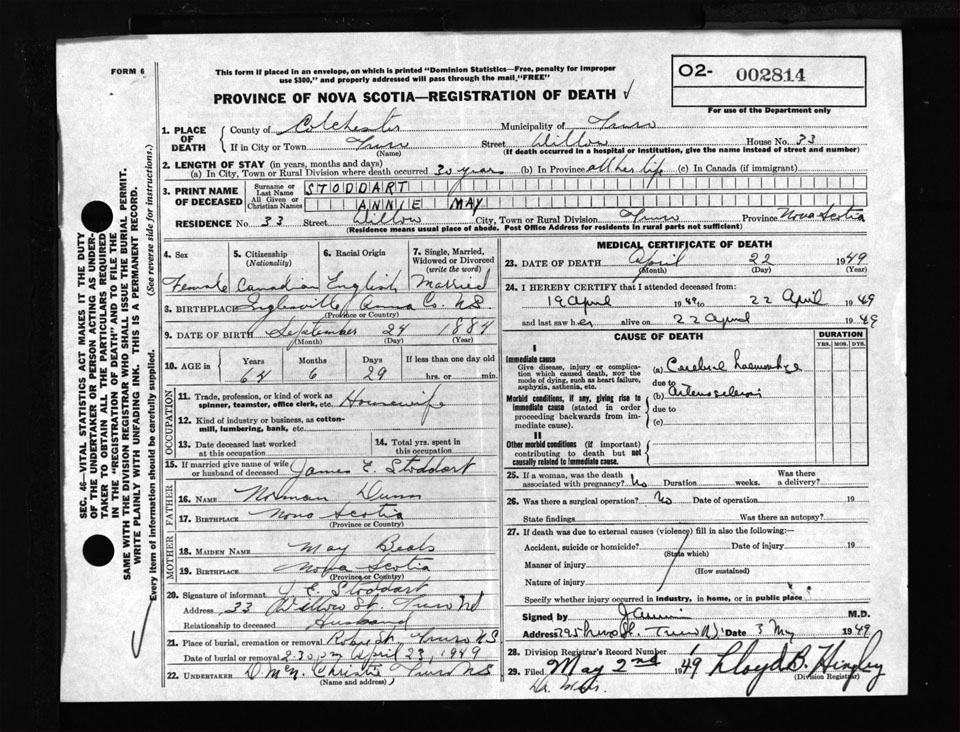 FORM 6
This form if placed in an envelope, on which is printed "Dominion Statistics—Free, penalty for improper
use $300," and properly addressed will pass through the mail "FREE"
O2- 002814
For use of the Department only
PROVINCE OF NOVA SCOTIA—REGISTRATION OF DEATH
1. PLACE OF DEATH
County of Colchester Municipality of Truro
If in City or Town Truro Street Willow House No. 33
(Name) (If death occurred in a hospital or institution, give the name instead of street and number)
2. LENGTH OF STAY (in years, months and days)
(a) In City, Town or Rural Division where death occurred 30 years (b) In Province all her life (c) In Canada (if immigrant)
3. PRINT NAME OF DECEASED
Surname or Last Name STODDART
All Given or Christian Names ANNIE MAY
RESIDENCE No. 33 Street Willow City, Town or Rural Division Truro Province Nova Scotia
(Residence means usual place of abode. Post Office Address for residents in rural parts not sufficient)
4. Sex 5. Citizenship (Nationality) 6. Racial Origin 7. Single, Married, Widowed or Divorced (write the word)
Female Canadian English Married
8. BIRTHPLACE Inglisville Anna Co. NS
(Province or Country)
9. DATE OF BIRTH September 24 1884
(Month) (Day) (Year)
10. AGE in Years Months Days If less than one day old
64 6 29 hrs. or min.
OCCUPATION
11. Trade, profession, or kind of work as spinner, teamster, office clerk, etc. Housewife
12. Kind of industry or business, as cotton-mill, lumbering, bank, etc.
13. Date deceased last worked at this occupation 14. Total yrs. spent in this occupation
15. If married give name of wife or husband of deceased James E. Stoddart
FATHER
16. NAME Norman Dunn
17. BIRTHPLACE Nova Scotia
(Province or Country)
MOTHER
18. MAIDEN NAME May Beals
19. BIRTHPLACE Nova Scotia
(Province or Country)
20. Signature of informant J. E. Stoddart
Address 33 Willow St. Truro NS
Relationship to deceased Husband
21. Place of burial, cremation or removal Truro NS
Date of burial or removal 2.30 pm April 23, 1949
22. UNDERTAKER Christie Truro NS
(Name and address)
MEDICAL CERTIFICATE OF DEATH
23. DATE OF DEATH April 22 1949
(Month) (Day) (Year)
24. I HEREBY CERTIFY that I attended deceased from:
19 April 1949 to 22 April 1949
and last saw her alive on 22 April 1949
CAUSE OF DEATH DURATION
YRS. MOS. DYS.
I
Immediate cause
Give disease, injury or complication which caused death, NOT the mode of dying, such as heart failure, asphyxia, asthenia, etc.
(a) Cerebral haemorrhage
due to
Morbid conditions, if any, giving rise to immediate cause (stated in order proceeding backwards from immediate cause).
(b) Arteriosclerosis
due to
(c)
II
Other morbid conditions (if important) contributing to death but not causally related to immediate cause.
25. If a woman, was the death associated with pregnancy? No Duration weeks. Was there a delivery?
26. Was there a surgical operation? No Date of operation 19
State findings Was there an autopsy?
27. If death was due to external causes (violence) fill in also the following:—
Accident, suicide or homicide? Date of injury 19
(State which)
Manner of injury
(How sustained)
Nature of injury
Specify whether injury occurred in industry, in home, or in public place
Signed by M.D.
Address Truro NS Date 3 May 1949
28. Division Registrar's Record Number
29. Filed May 2nd 1949 Lloyd B. Hingley
(Division Registrar)
SEC. 46—VITAL STATISTICS ACT MAKES IT THE DUTY
OF THE UNDERTAKER OR PERSON ACTING AS UNDER-
TAKER TO OBTAIN ALL THE PARTICULARS REQUIRED
IN THE "REGISTRATION OF DEATH" AND TO FILE THE
SAME WITH THE DIVISION REGISTRAR WHO SHALL ISSUE THE BURIAL PERMIT.
WRITE PLAINLY WITH UNFADING INK. THIS IS A PERMANENT RECORD.
Every item of information should be carefully supplied. (See reverse side for instructions.)